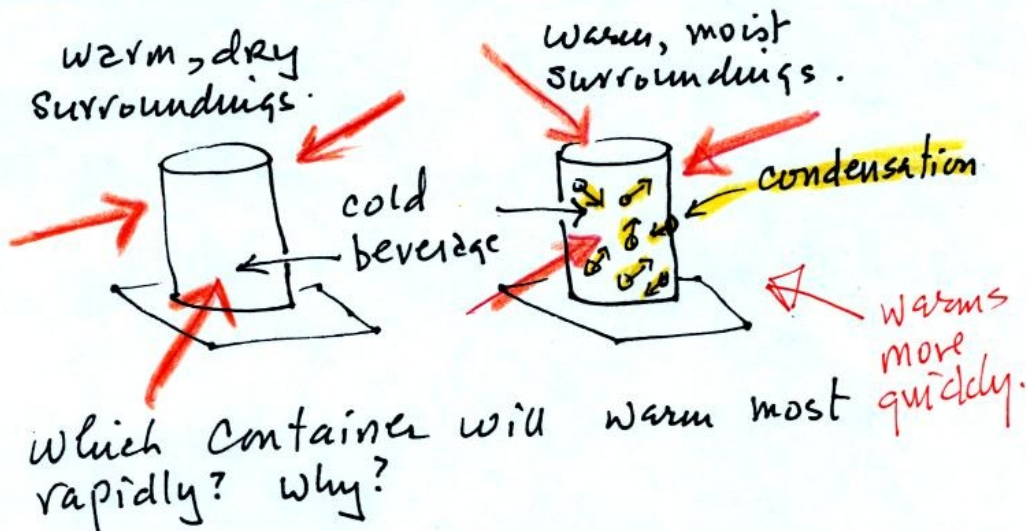 warm, dry
surroundings.
warm, moist
surroundings.
cold
beverage
condensation
warms
more
quickly.
Which container will warm most
rapidly? why?